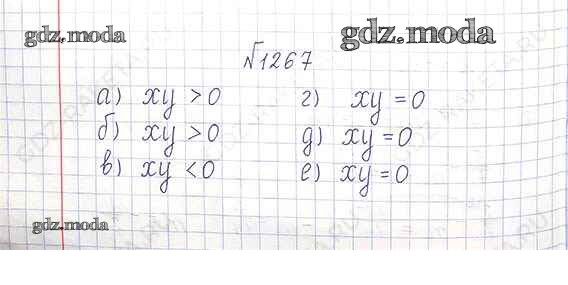 gdz.moda
gdz.moda
№1267
а) xy > 0
г) xy = 0
б) xy > 0
д) xy = 0
в) xy < 0
е) xy = 0
gdz.moda